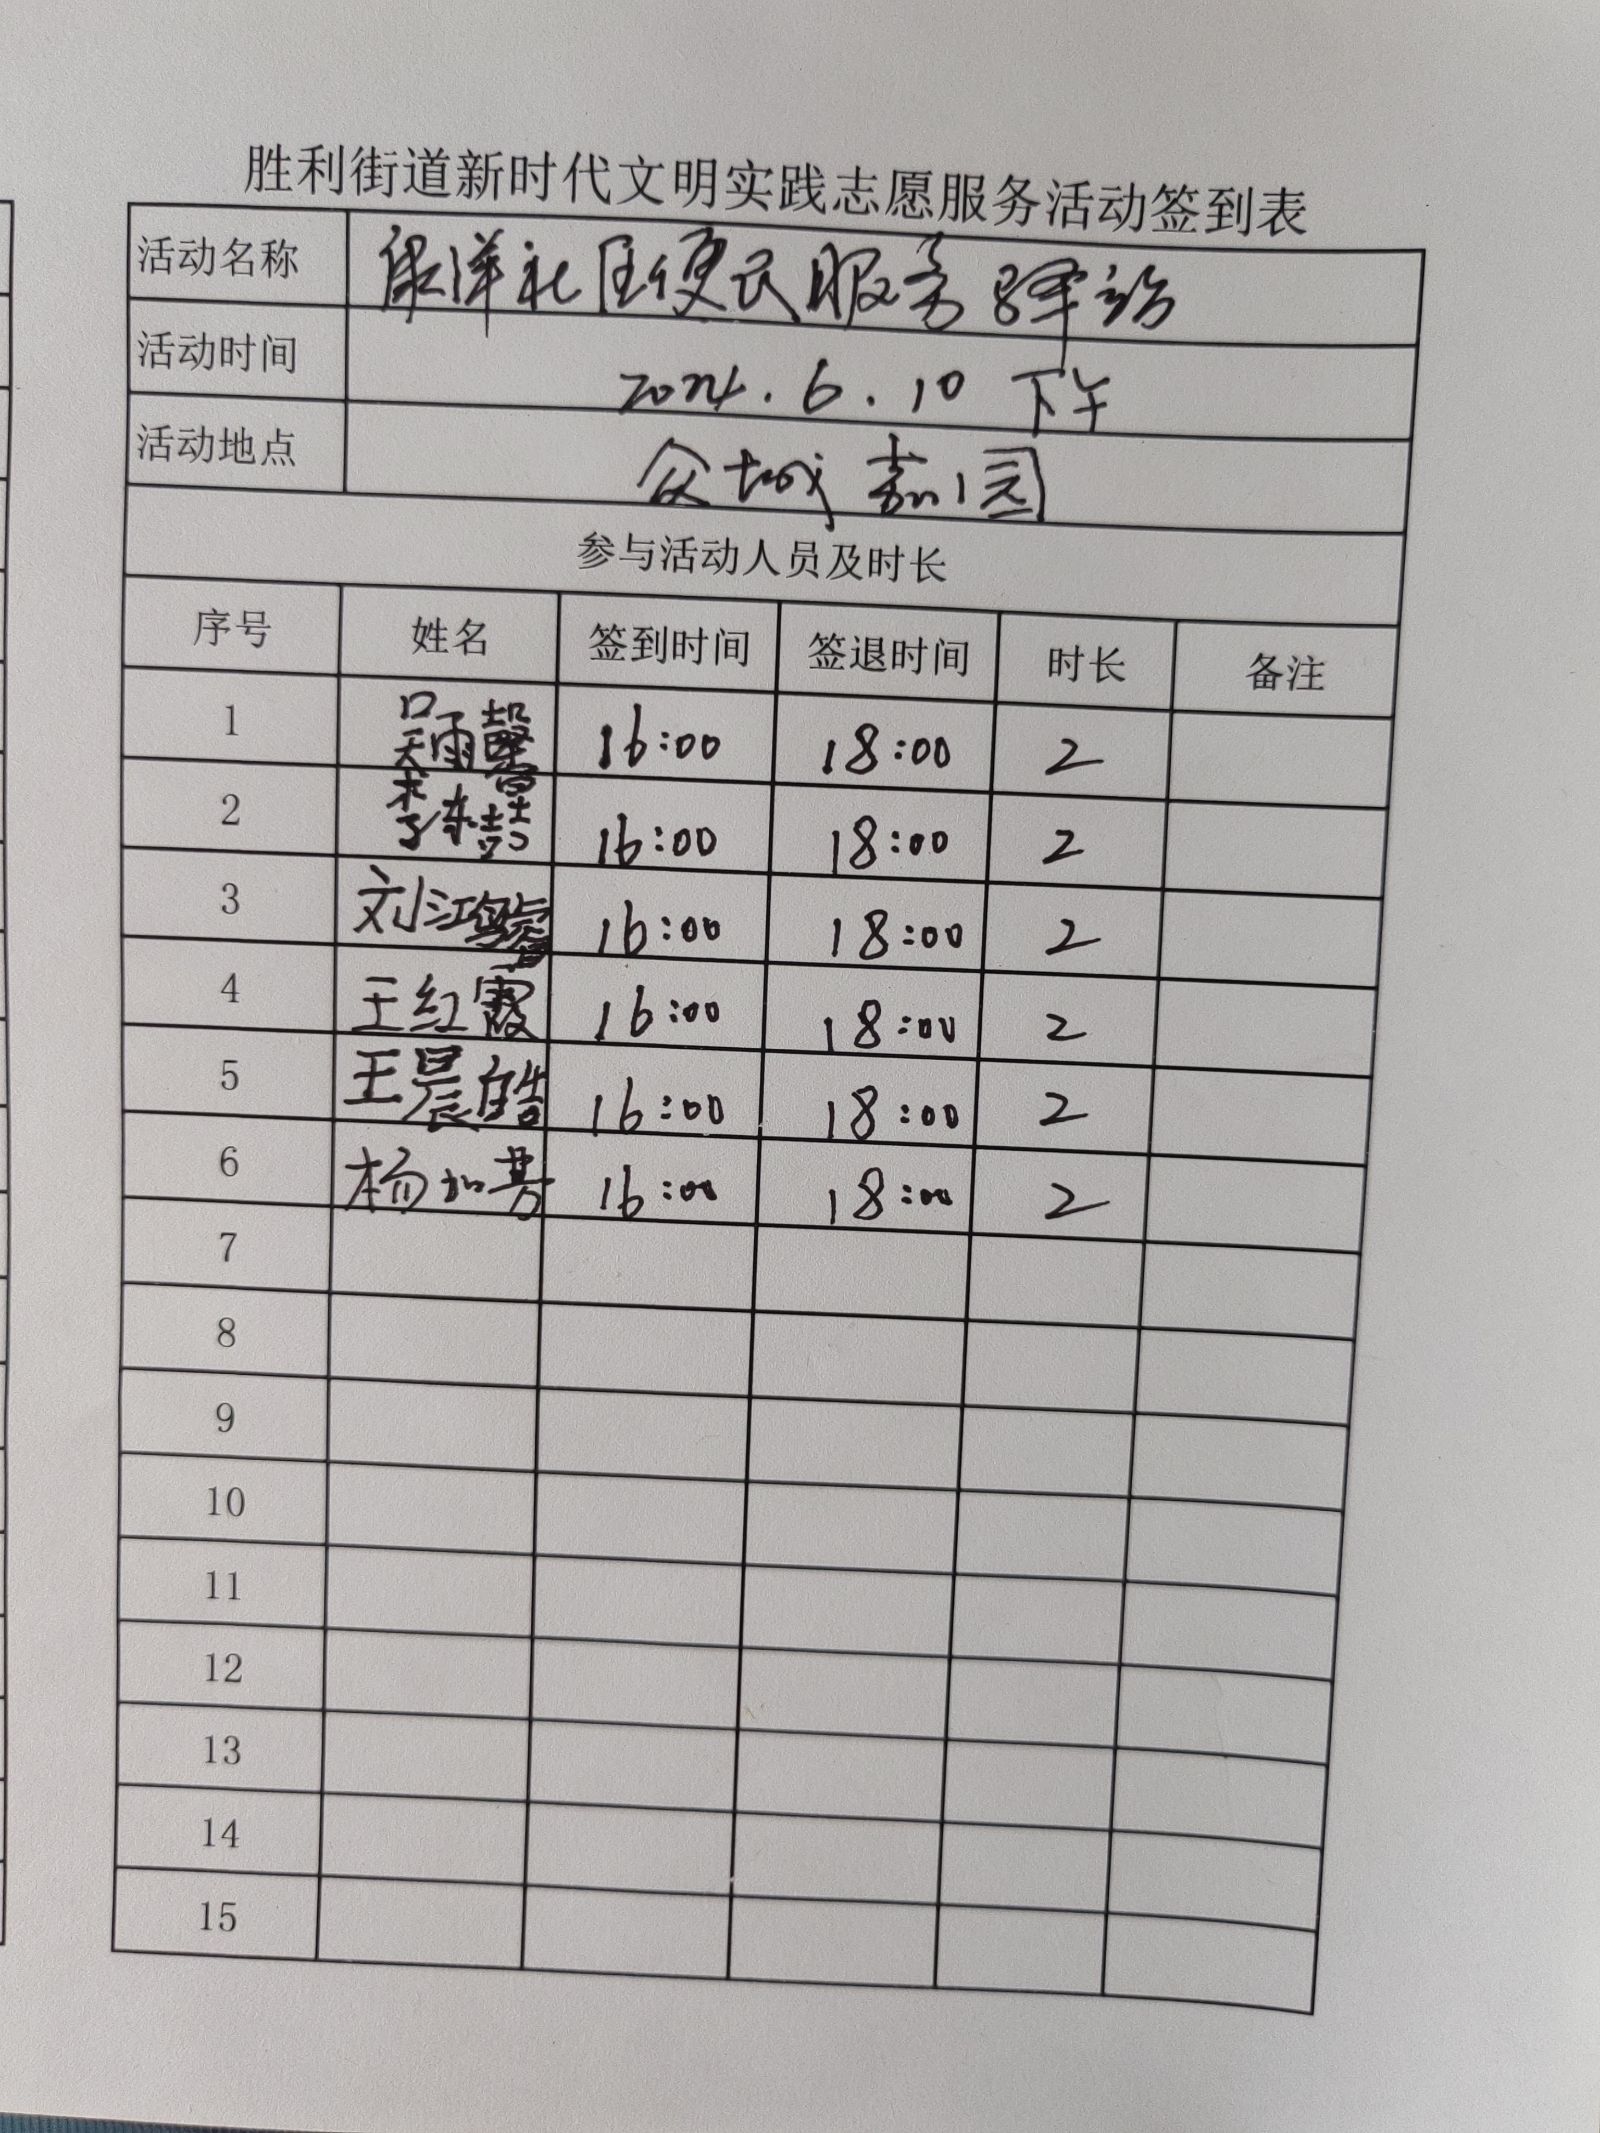 胜利街道新时代文明实践志愿服务活动签到表
活动名称 社区便民服务驿站
活动时间 2024.6.10 下午
活动地点 众城嘉园
参与活动人员及时长
序号 姓名 签到时间 签退时间 时长 备注
1 吴雨馨 16:00 18:00 2
2 李 16:00 18:00 2
3 刘江 16:00 18:00 2
4 王红霞 16:00 18:00 2
5 王晨皓 16:00 18:00 2
6 杨如芳 16:00 18:00 2
7
8
9
10
11
12
13
14
15